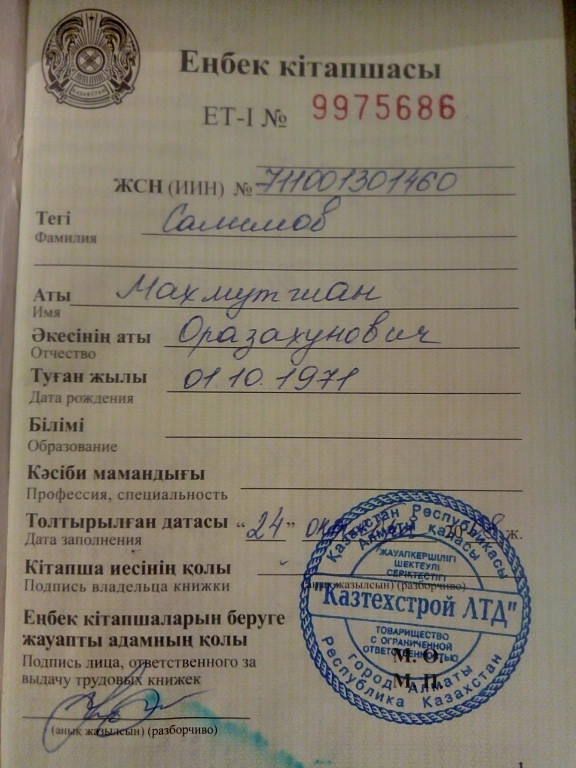 ҚАЗАҚСТАН
Еңбек кітапшасы
ЕТ-I № 9975686
ЖСН (ИИН) № 711001301460
Тегі Салимов
Фамилия
Аты Махмутжан
Имя
Әкесінің аты Оразахунович
Отчество
Туған жылы 01.10.1971
Дата рождения
Білімі
Образование
Кәсіби мамандығы
Профессия, специальность
Толтырылған датасы “24” 20 ж.
Дата заполнения
Кітапша иесінің қолы
Подпись владельца книжки (анық жазылсын) (разборчиво)
Еңбек кітапшаларын беруге
жауапты адамның қолы
Подпись лица, ответственного за
выдачу трудовых книжек
(анық жазылсын) (разборчиво)
М. О.
М. П.
Қазақстан Республикасы
Алматы қаласы
ЖАУАПКЕРШІЛІГІ
ШЕКТЕУЛІ
СЕРІКТЕСТІГІ
"Казтехстрой ЛТД"
ТОВАРИЩЕСТВО
С ОГРАНИЧЕННОЙ
ОТВЕТСТВЕННОСТЬЮ
город Алматы
Республика Казахстан
1